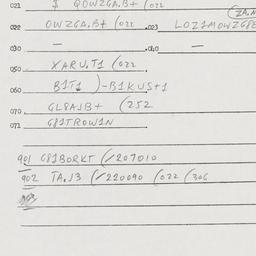 021 $ QOWZGA.B+ (022
(ZA.N
022 OWZGA.B+ (022 .023 LOZ1MOWZG8E
030 — .040 —
050 XARU.T1 (022
060 B1T1 )-B1KUS+1
070 GL8AJB+ (252
071 G81TROW1N
901 G81BORKT (/207010
902 TA.J3 (/220090 (022 (306